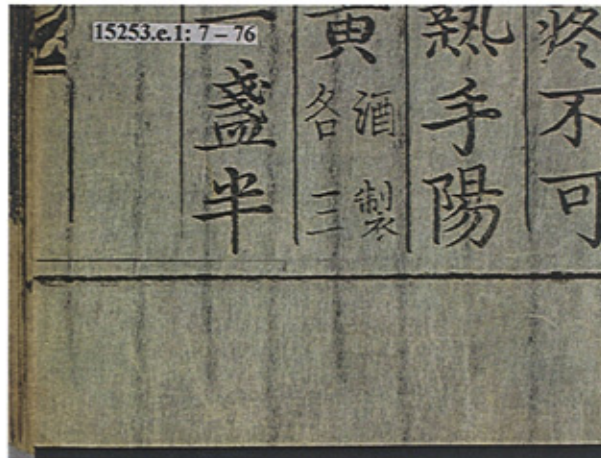 15253.e.1: 7 – 76
疼不可
熱手陽
黄
酒製
各三
一盞半